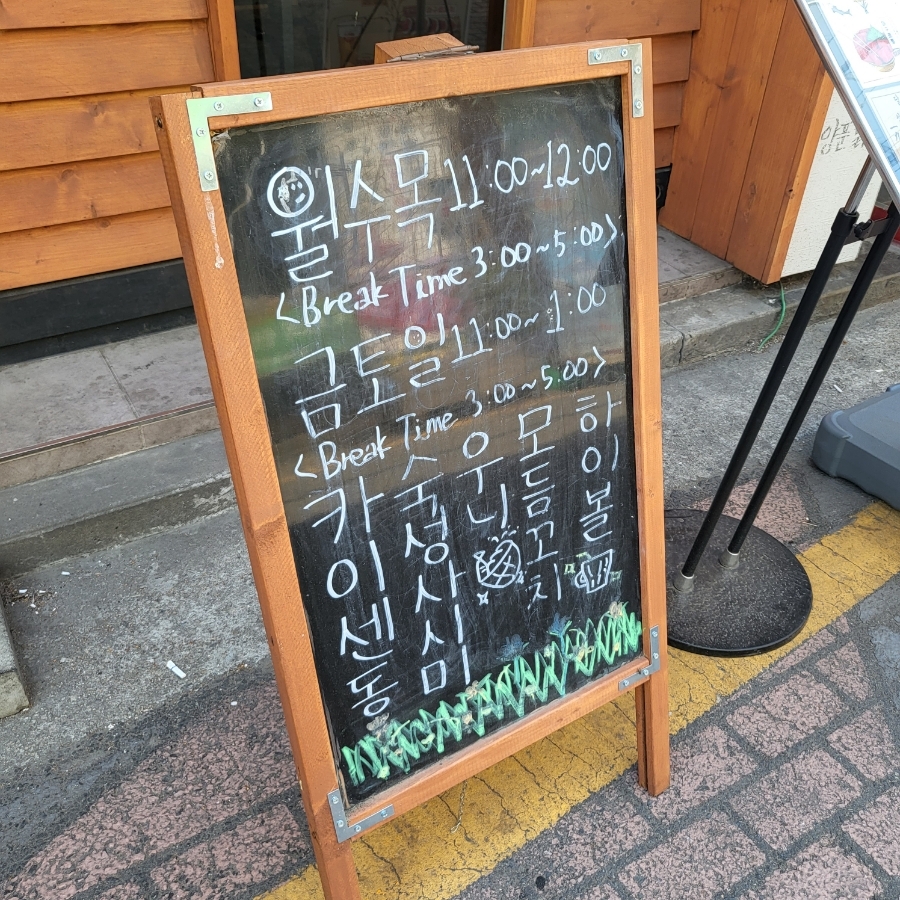 월수목 11:00~12:00
<Break Time 3:00~5:00>
금토일 11:00~1:00
<Break Time 3:00~5:00>
카이센동
숙성사시미
우니
모듬꼬치
하이볼